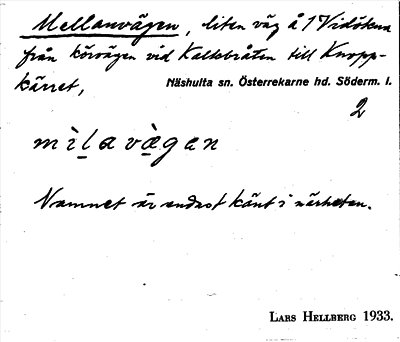 Mellanvägen, liten väg å 1 Vidökna
från körvägen vid Kaltbråten till Knopp-
kärret,
Näshulta sn. Österrekarne hd. Söderm. l.
2
mìḷavæ̀gan
Namnet är endast känt i närheten.
LARS HELLBERG 1933.